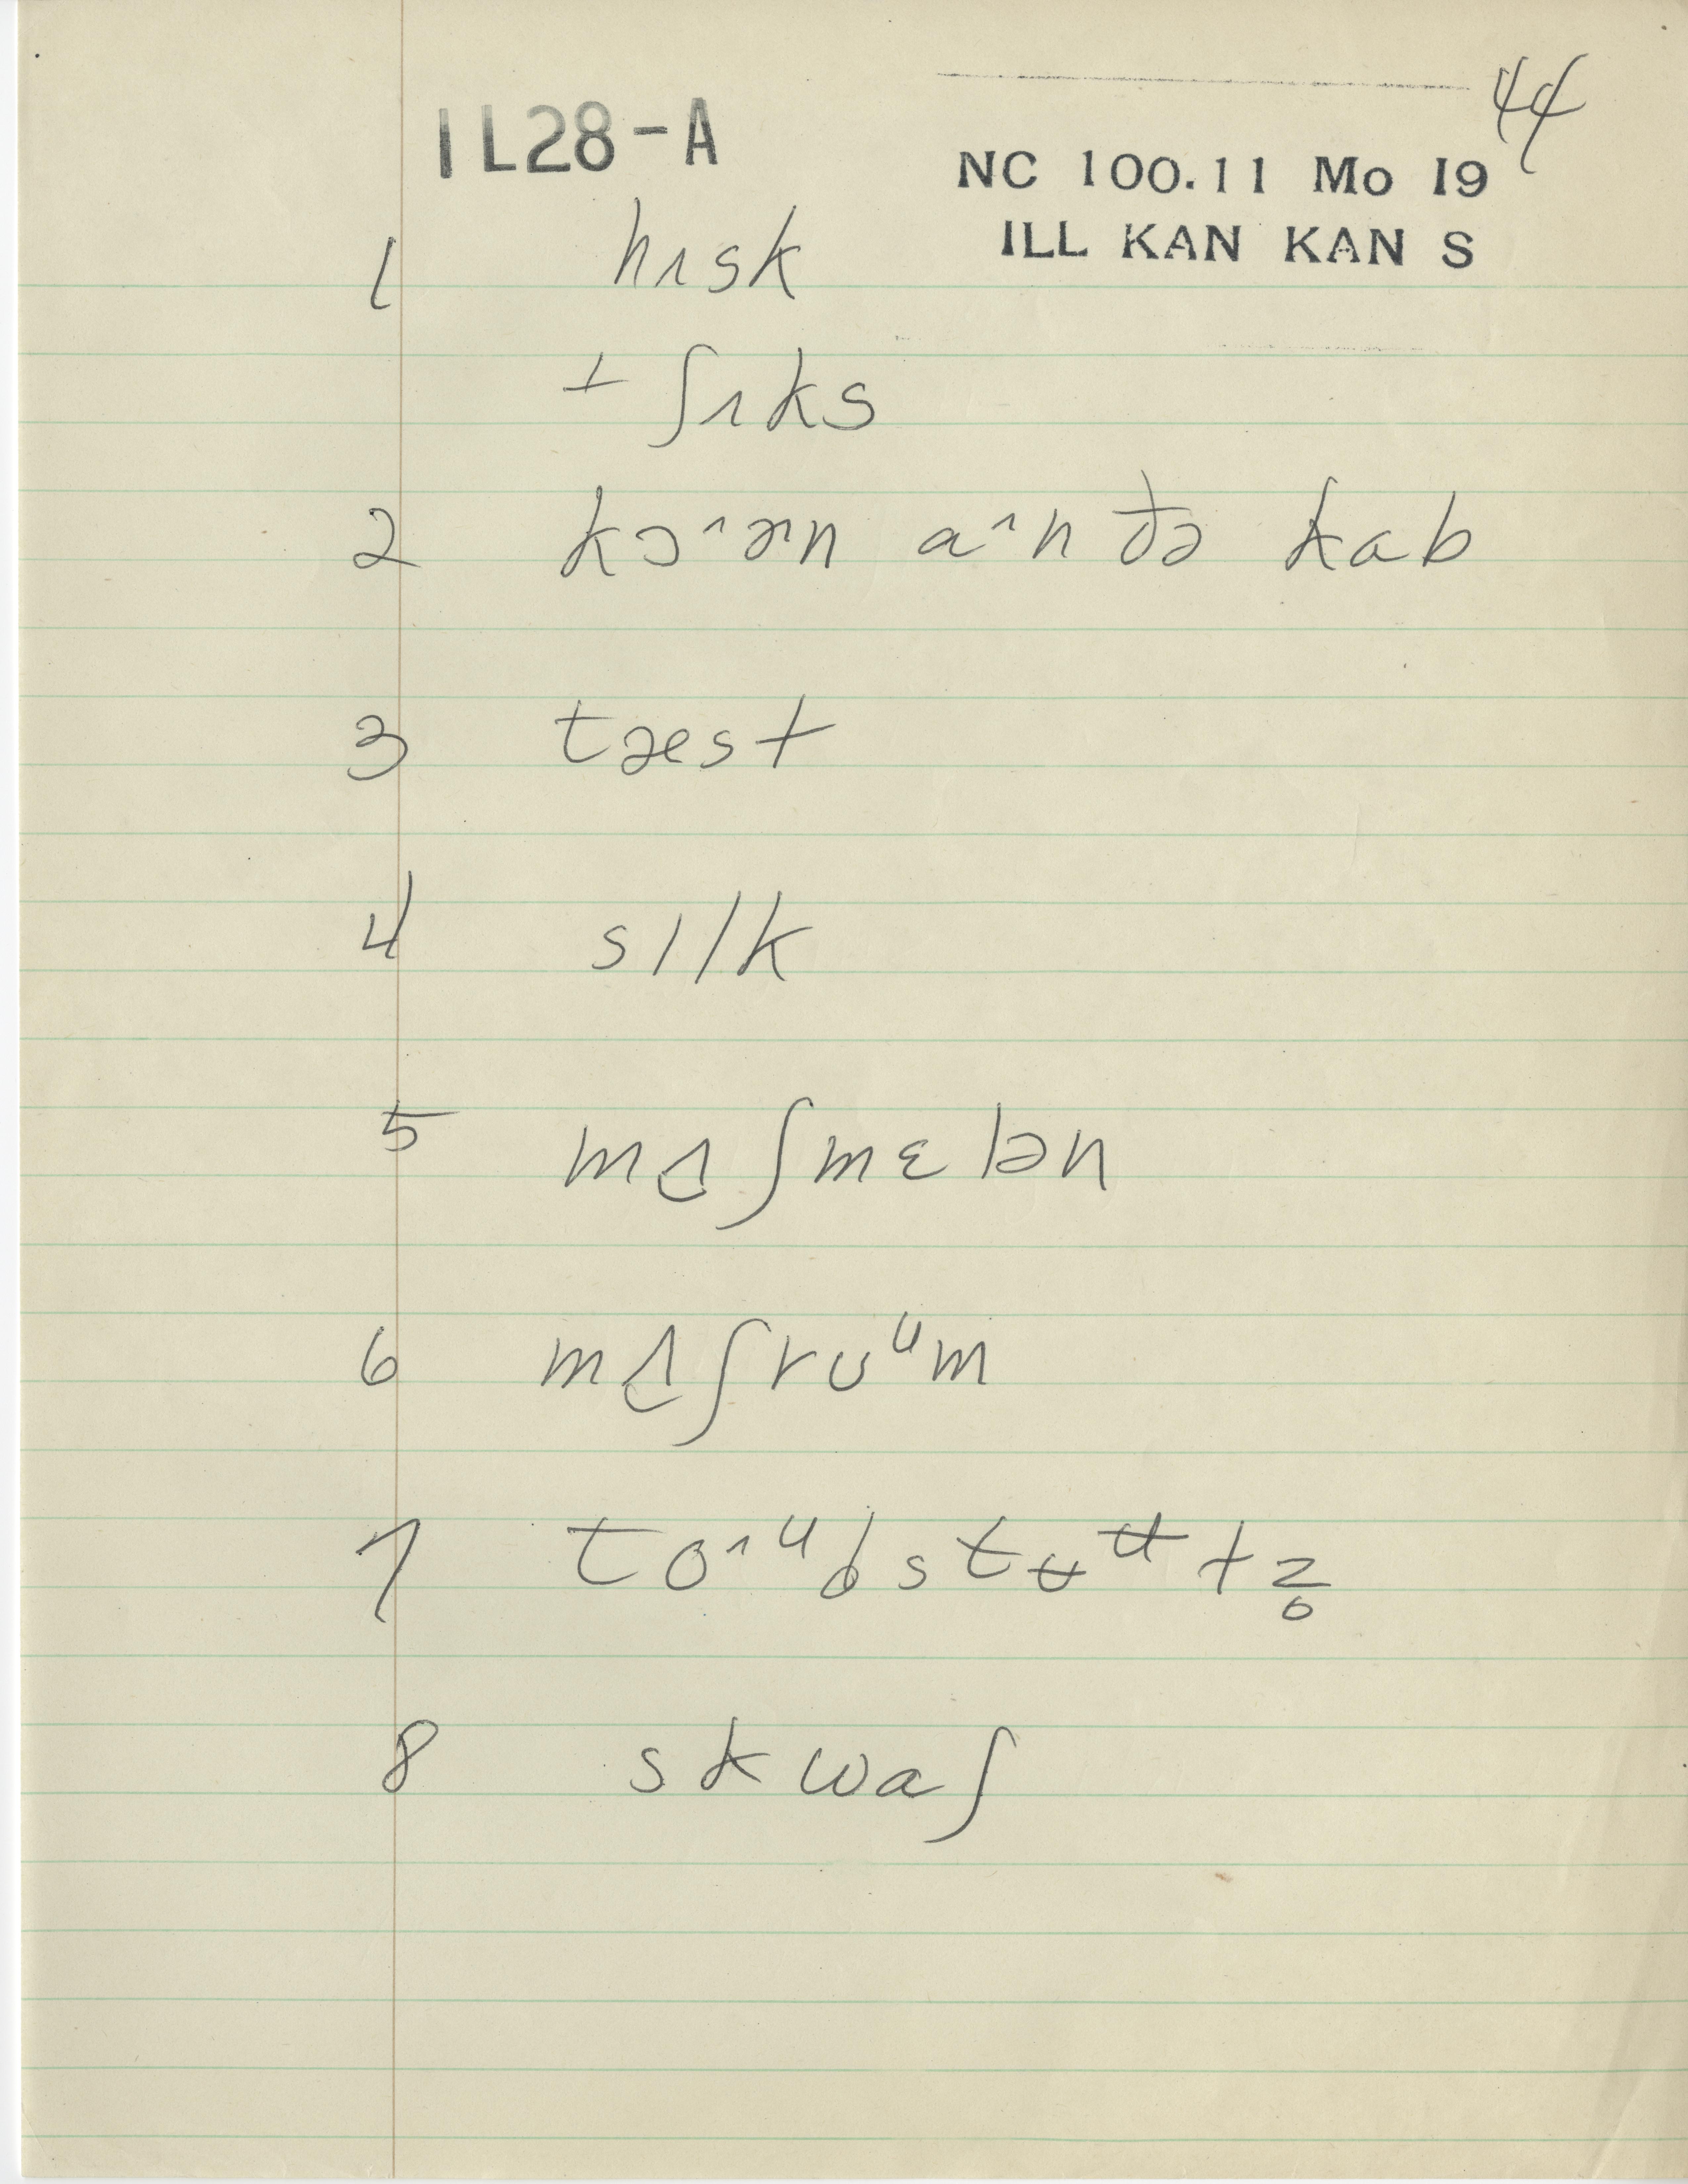 44
1L28-A
NC 100.11 Mo 19
ILL KAN KAN S
1 hʌsk
+ ʃʌks
2 kɔ˄ɚn a˄n ðə kab
3 tæst
4 sɪlk
5 mʌ̢ʃmɛlən
6 mʌ̢ʃrʊᵘm
7 to˄ᵘdstʊ̵ᵾtz̥
8 skwaʃ